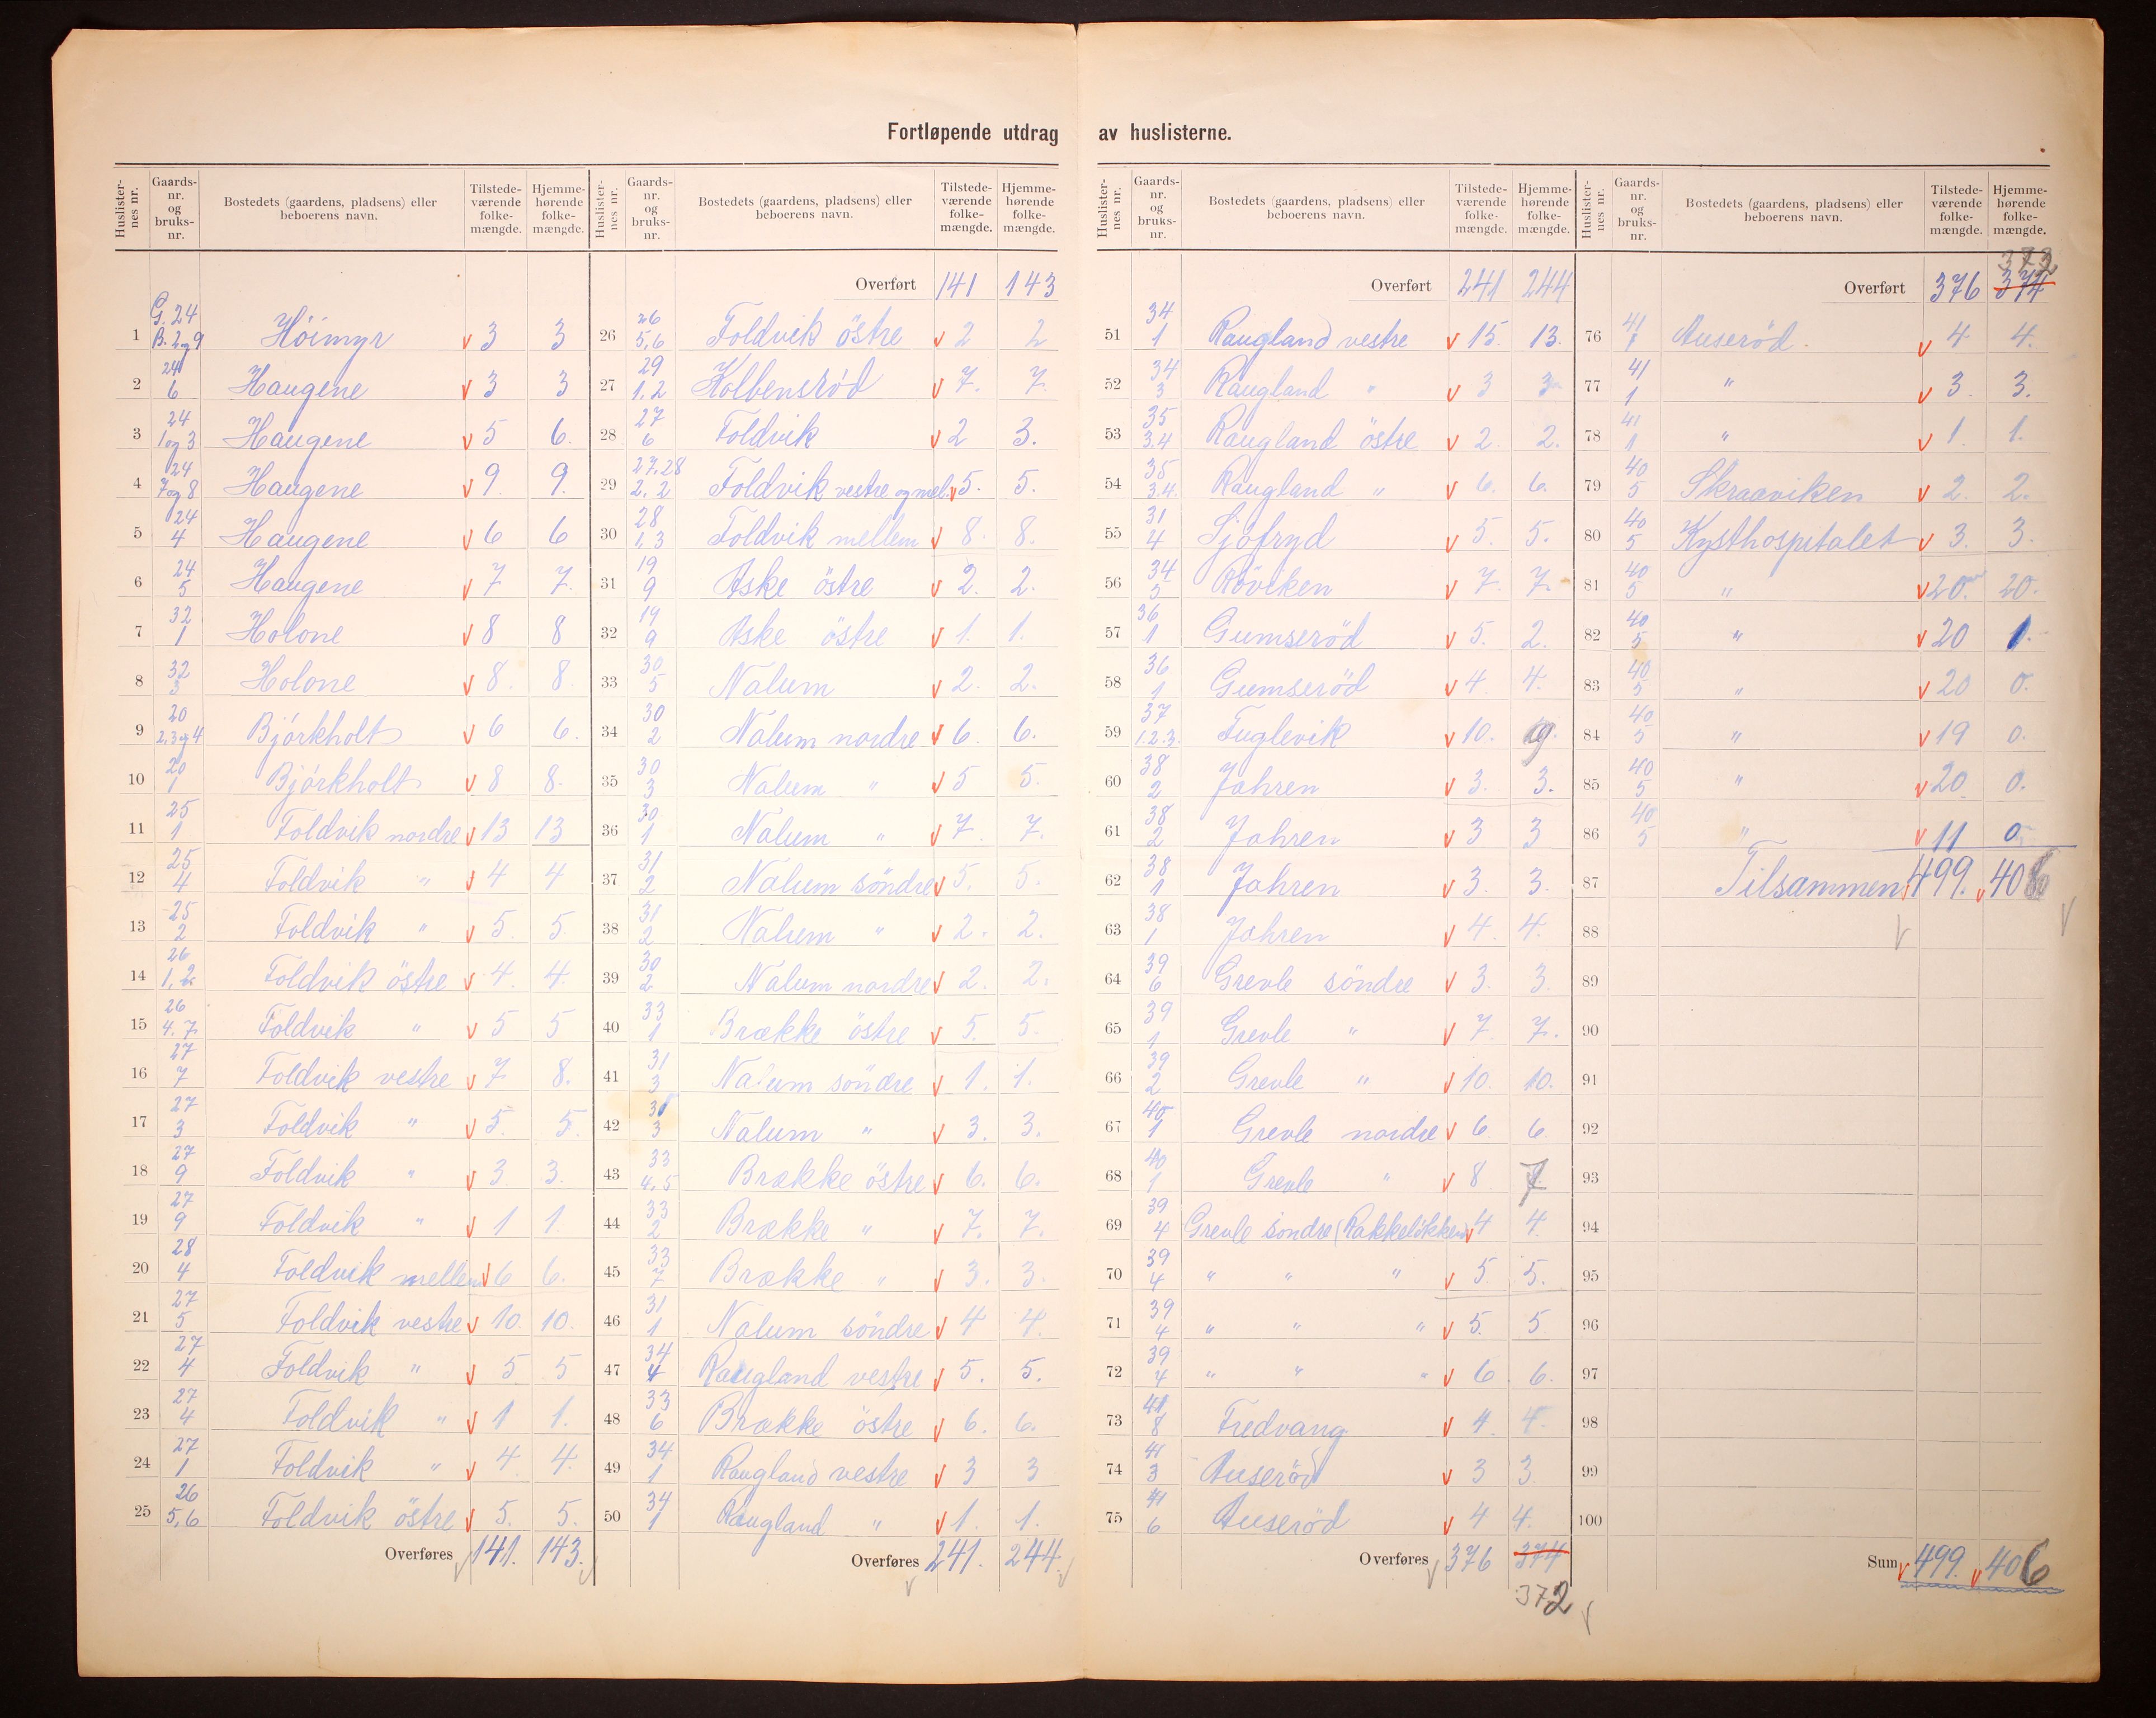 Fortløpende utdrag av huslisterne.
Huslister-nes nr. | Gaards-nr. og bruks-nr. | Bostedets (gaardens, pladsens) eller beboerens navn. | Tilstede-værende folke-mængde. | Hjemme-hørende folke-mængde.
1 G. 24 B. 2og9 Höimyr v 3 3
2 24 6 Haugene v 3 3
3 24 1og3 Haugene v 5 6.
4 24 7og8 Haugene v 9. 9.
5 24 4 Haugene v 6 6
6 24 5 Haugene v 7 7.
7 32 1 Holone v 8 8
8 32 3 Holone v 8. 8.
9 20 2,3og4 Björkholt v 6 6.
10 20 1 Björkholt v 8 8.
11 25 1 Foldvik nordre v 13 13
12 25 4 Foldvik " v 4 4
13 25 2 Foldvik " v 5. 5.
14 26 1,2 Foldvik östre v 4. 4.
15 26 4.7 Foldvik " v 5 5
16 27 7 Foldvik vestre v 7 8.
17 27 3 Foldvik " v 5. 5.
18 27 9 Foldvik " v 3. 3.
19 27 9 Foldvik " v 1 1.
20 28 4 Foldvik mellem v 6 6.
21 27 5 Foldvik vestre v 10. 10.
22 27 4 Foldvik " v 5 5
23 27 4 Foldvik " v 1 1.
24 27 1 Foldvik " v 4. 4.
25 26 5,6 Foldvik östre v 5. 5.
Overføres 141. 143.
Huslister-nes nr. | Gaards-nr. og bruks-nr. | Bostedets (gaardens, pladsens) eller beboerens navn. | Tilstede-værende folke-mængde. | Hjemme-hørende folke-mængde.
Overført 141 143
26 26 5,6 Foldvik östre v 2 2
27 29 1.2 Kolbensröd v 7. 7.
28 27 6 Foldvik v 2 3.
29 27,28 2,2 Foldvik vestre og mel. v 5. 5.
30 28 1,3 Foldvik mellem v 8. 8.
31 19 9 Aske östre v 2. 2.
32 19 9 Aske östre v 1. 1.
33 30 5 Nalum v 2. 2.
34 30 2 Nalum nordre v 6. 6.
35 30 3 Nalum " v 5 5.
36 30 1 Nalum " v 7. 7.
37 31 2 Nalum söndre v 5. 5.
38 31 2 Nalum " v 2. 2.
39 30 2 Nalum nordre v 2. 2.
40 33 1 Brække östre v 5. 5.
41 31 3 Nalum söndre v 1. 1.
42 31 3 Nalum " v 3. 3.
43 33 4,5 Brække östre v 6. 6.
44 33 2 Brække " v 7. 7.
45 33 7 Brække " v 3. 3.
46 31 1 Nalum söndre v 4 4.
47 34 4 Raugland vestre v 5. 5.
48 33 6 Brække östre v 6. 6.
49 34 1 Raugland vestre v 3 3
50 34 1 Raugland " v 1. 1.
Overføres 241. 244.
Huslister-nes nr. | Gaards-nr. og bruks-nr. | Bostedets (gaardens, pladsens) eller beboerens navn. | Tilstede-værende folke-mængde. | Hjemme-hørende folke-mængde.
Overført 241 244
51 34 1 Raugland vestre v 15. 13.
52 34 3 Raugland " v 3 3.
53 35 3.4 Raugland östre v 2. 2.
54 35 3.4. Raugland " v 6. 6.
55 31 4 Sjöfryd v 5. 5.
56 34 5 Röviken v 7. 7.
57 36 1 Gumseröd v 5. 2.
58 36 1 Gumseröd v 4. 4.
59 37 1.2.3. Fuglevik v 10. 9.
60 38 2 Jahren v 3. 3.
61 38 2 Jahren v 3 3
62 38 1 Jahren v 3. 3.
63 38 1 Jahren v 4. 4.
64 39 6 Grevle söndre v 3. 3.
65 39 1 Grevle " v 7. 7.
66 39 2 Grevle " v 10. 10.
67 40 1 Grevle nordre v 6 6
68 40 1 Grevle " v 8 7
69 39 4 Grevle söndre (Rakkeløkken) v 4 4.
70 39 4 " " " v 5. 5.
71 39 4 " " " v 5. 5
72 39 4 " " " v 6 6.
73 41 8 Fredvang v 4. 4.
74 41 3 Auseröd v 3 3
75 41 6 Auseröd v 4 4.
Overføres 376 374
372
Huslister-nes nr. | Gaards-nr. og bruks-nr. | Bostedets (gaardens, pladsens) eller beboerens navn. | Tilstede-værende folke-mængde. | Hjemme-hørende folke-mængde.
372
Overført 376 374
76 41 7 Auseröd. v 4 4.
77 41 1 " v 3. 3.
78 41 1 " v 1. 1.
79 40 5 Skraaviken v 2. 2.
80 40 5 Kysthospitalet v 3. 3.
81 40 5 " v 20. 20.
82 40 5 " v 20 1.
83 40 5 " v 20 0.
84 40 5 " v 19 0.
85 40 5 " v 20. 0.
86 40 5 " v 11 0.
87 Tilsammen v 499. v 406
88
89
90
91
92
93
94
95
96
97
98
99
100
Sum v 499. v 406